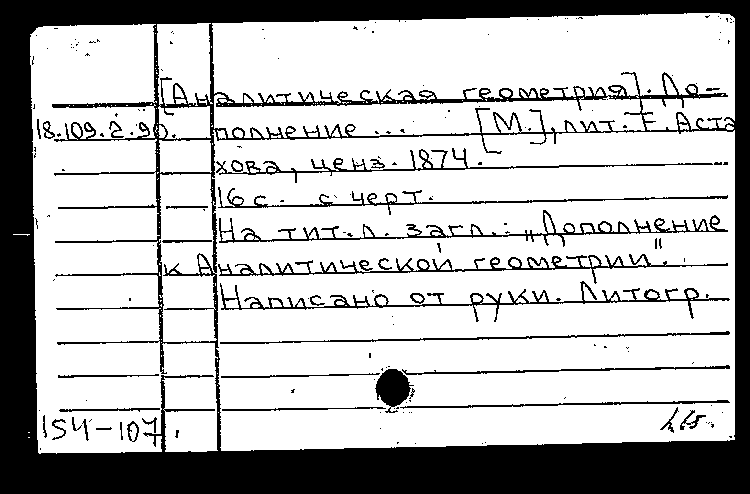 [Аналитическая геометрия]. До-
18.109.2.90. полнение ... [М.], лит. Г. Аста
хова, ценз. 1874.
16 с. с черт.
На тит. л. загл.: „Дополнение
к Аналитической геометрии".
Написано от руки. Литогр.
154-107.